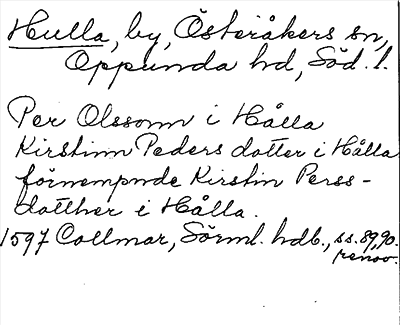 Hulla, by, Österåkers sn,
Oppunda hd, Söd. l.
Per Olssonn i Hålla
Kirstinn Peders dotter i Hålla
förnempnde Kirstin Perss-
dotther i Hålla.
1597 Collmar, Sörml. hdb., ss. 89, 90.
renov.